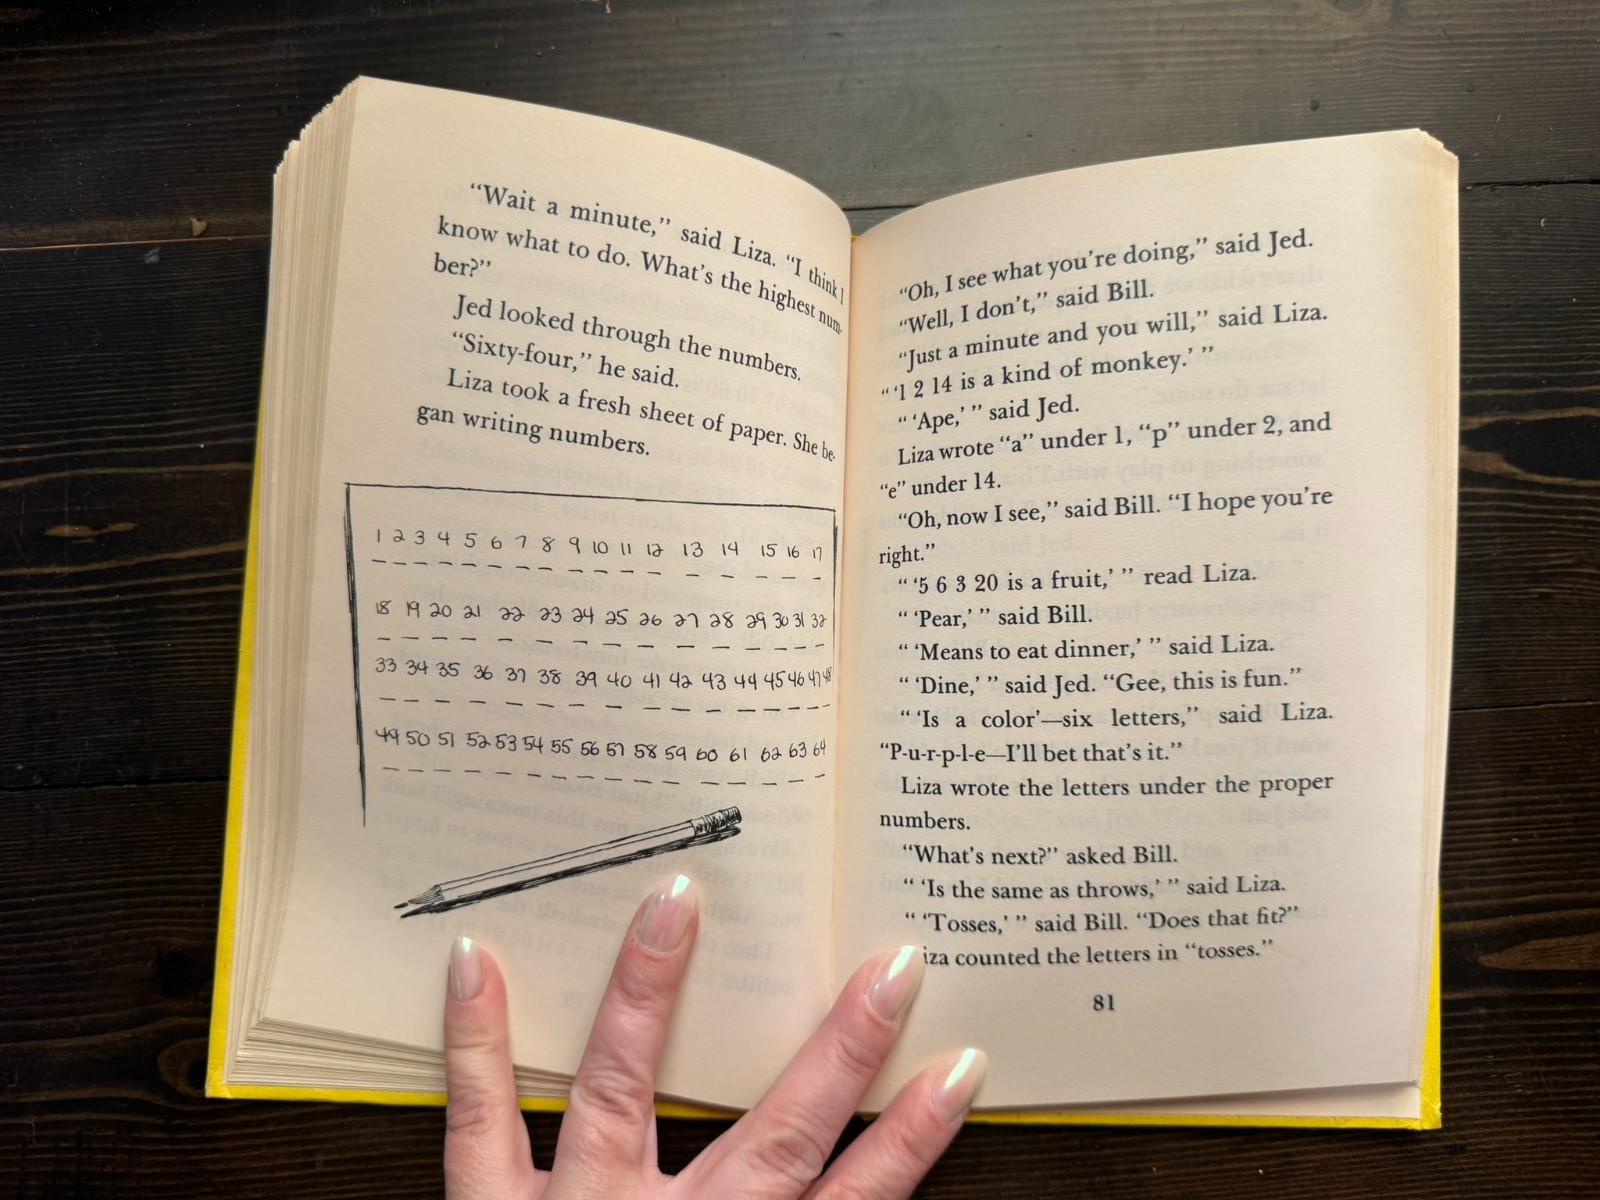 “Wait a minute,” said Liza. “I think I
know what to do. What’s the highest num-
ber?”
Jed looked through the numbers.
“Sixty-four,” he said.
Liza took a fresh sheet of paper. She be-
gan writing numbers.
1 2 3 4 5 6 7 8 9 10 11 12 13 14 15 16 17
18 19 20 21 22 23 24 25 26 27 28 29 30 31 32
33 34 35 36 37 38 39 40 41 42 43 44 45 46 47 48
49 50 51 52 53 54 55 56 57 58 59 60 61 62 63 64
“Oh, I see what you’re doing,” said Jed.
“Well, I don’t,” said Bill.
“Just a minute and you will,” said Liza.
“ ‘1 2 14 is a kind of monkey.’ ”
“ ‘Ape,’ ” said Jed.
Liza wrote “a” under 1, “p” under 2, and
“e” under 14.
“Oh, now I see,” said Bill. “I hope you’re
right.”
“ ‘5 6 3 20 is a fruit,’ ” read Liza.
“ ‘Pear,’ ” said Bill.
“ ‘Means to eat dinner,’ ” said Liza.
“ ‘Dine,’ ” said Jed. “Gee, this is fun.”
“ ‘Is a color’—six letters,” said Liza.
“P-u-r-p-l-e—I’ll bet that’s it.”
Liza wrote the letters under the proper
numbers.
“What’s next?” asked Bill.
“ ‘Is the same as throws,’ ” said Liza.
“ ‘Tosses,’ ” said Bill. “Does that fit?”
iza counted the letters in “tosses.”
81